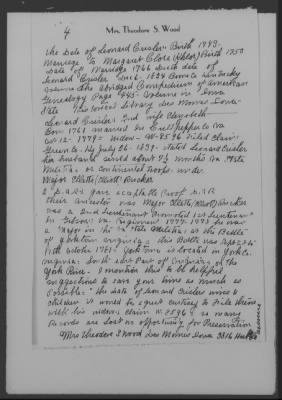 4
Mrs. Theodore S. Wood
The Date of Leonard Crisler Birth 1743-
Marriage to Margaret Clore (Khlor) Birth 1750
Date of Marriage 1766 Death date of
Leonard Crisler Dec 6-1824 Boone Co Kentucky
Volume the Abridged Compendium of American
Genealogy Page 445- Volume in Iowa
State Historical Library Des Moines Iowa-
Leonard Crisler 2nd wife Elizabeth
Born 1761 married in Culpepper Co Va
Oct 12-1779 - Widow - W-8596 stated Claim
Green Co. Ky July 26-1839- Stated Leonard Crisler
her husband served about 9½ months Va State
Militia or Continental Troops under
Major Elliott Rucker
2 papers gave acceptable proof D.A.R
their ancestor was Major Elliott Rucker
was a 2nd Lieutenant Promoted 1st Lieutenant
in Gibson Va Regiment 1777-1778 he was
a "Major in the Va State Militia" at the Battle
of Yorktown Virginia this Battle was Sept 28 to
19th October 1781- Yorktown is located in York Co.
Virginia South East Part of Virginia on the
York River. I mention this to be helpful
suggestions to save your time as much as
Possible- The date of Leonard Crisler wives &
children it would be a great courtesy to File these
with his widow's Claim W-8596 as many
Records are lost an opportunity for Preservation
Mrs Theodore S Wood Des Moines Iowa 3316